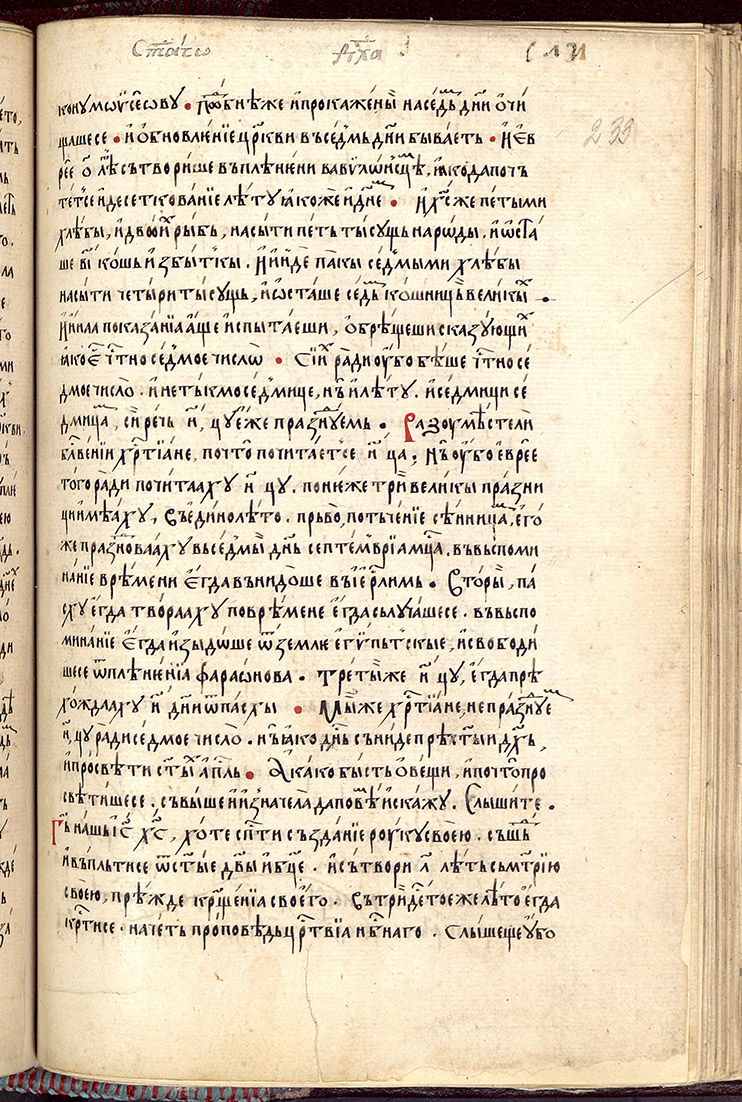 Стго Архаг
233
кону мѡѵсеѡву • Пѡⷣбнѣже и прокажены на седмь дни ѻчи
щашесе • и ѻбновленїе црⷦкви въ седмь дни бываетъ • И ев
рее ѻ л҃ѣ сътворише въ плѣнени вавѵлѡнⷭцѣмь, ꙗко да почь
тетсе и десеткованїе лѣту ꙗкоже и днемь • И хⷭже петыми
хлѣбы, и двоихь рыбь, насыти петь тысущь народы. и ѡста
ше в҃і кошь избытькы. И инде пакы седмыми хлѣбы
насыти четыри тысущь, и ѡсташе седмь кошниць великыхь •
И ина показанїа аще испытаеши, ѻбрѣщеши сказующихь
ꙗко еⷭ чⷭтно седмое число • Сихь ради оубо бѣше чⷭтно се
дмое число. и не тькмо седмице, нь и лѣту. и седмици се
дмиць, сирѣчь н҃, цуже празнуемь • Разоумѣсте ли
блⷭвенїи хрⷭтїане, почто почитаетсе н҃ ца. Нь оубо еврее
того ради почитааху н҃ цу. понеже три великы празни
ци имѣаху, въ едино лѣто. прьво, потьченїе сѣнницамь, его
же празноваху вь седмы днь септемврїа мцⷭа. въ въспоми
нанїе врѣмени егда вънидоше въ іерлⷭимь • Вторы, па
сху егда твораху по врѣмене егда сълучашесе. въ въспо
минанїе егда изыдѡше ѿ земле егѵпьтскые, и свободи
шесе ѿ плѣненїа фараѡнова. третыже н҃ цу, егда прѣ
хождааху н҃ дни ѿ пасхы • Мыже хрⷭтїане, не празнуемь
н҃, цу ради седмое число. нь ꙗко днь сънидe прѣсты и дхь,
и просвѣти стыхь апⷭль • А како бысть ѻ вещи, и почто про
свѣтишесе. съвыше и изначела да повѣмь и скажу. Слышите.
Гь нашь іс хс, хоте спⷭти създанїе роукусвоею. съшьⷣ
и въплътисе ѿ стые двы и бце. и сътвори л҃ лѣть съ мтрїю
своею, прѣжде крⷭщенїа своего. Въ тридесетоеже лѣто егда
крⷭтисе. начеть проповѣдь црⷭтвїа нбⷭнаго. Слышеще оубо